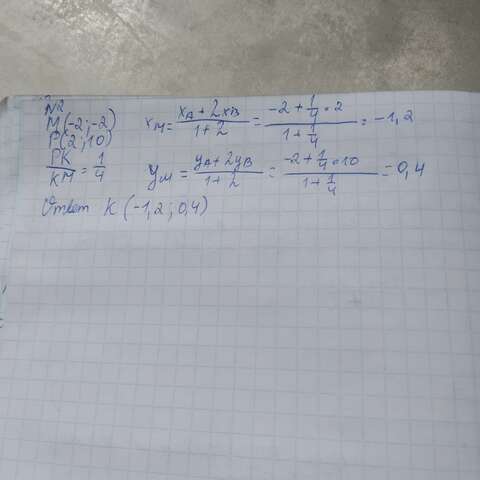 N2
M(-2;-2)
P(2;10)
PK/KM = 1/4
xM = (xA+2xB)/(1+2) = (-2+1/4·2)/(1+1/4) = -1,2
yM = (yA+2yB)/(1+2) = (-2+1/4·10)/(1+1/4) = 0,4
Ответ K (-1,2; 0,4)